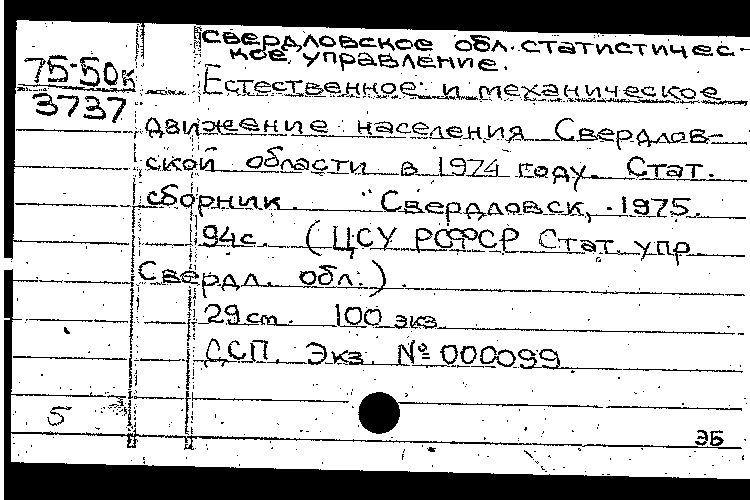 Свердловское обл. статистичес-
кое управление.
75-50к Естественное и механическое
3737
движение населения Свердлов-
ской области в 1974 году. Стат.
сборник. Свердловск, 1975.
94с. (ЦСУ РСФСР Стат. упр.
Свердл. обл.)
29см. 100 экз
ДСП. Экз. № 000099
5
ЭБ